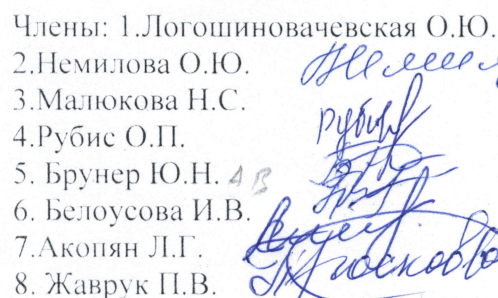 Члены: 1.Логошиновачевская О.Ю.
2.Немилова О.Ю.
3.Малюкова Н.С.
4.Рубис О.П.
5. Брунер Ю.Н.
6. Белоусова И.В.
7.Акопян Л.Г.
8. Жаврук П.В.